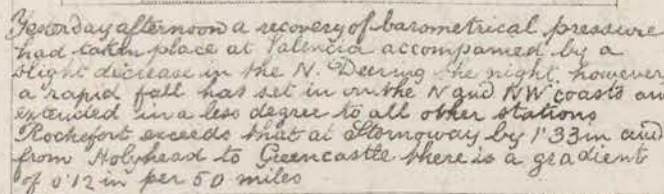 Yesterday afternoon a recovery of barometrical pressure
had taken place at Valencia accompanied by a
slight decrease in the N. Deering the night, however
a rapid fall has set in on the N and NW coasts an
extended in a less degree to all other stations
Rochefort exceeds that at Stornoway by 1'33 in and
from Holyhead to Greencastle there is a gradient
of 0'12 in per 50 miles